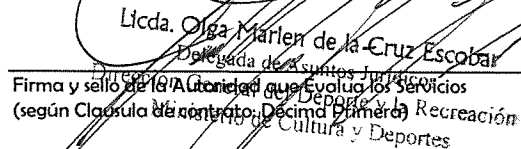 Licda. Olga Marlen de la Cruz Escobar
Delegada de Asuntos Jurídicos
Dirección General del Deporte y la Recreación
Ministerio de Cultura y Deportes
Firma y sello de la Autoridad que Evalua los Servicios
(según Clausula de contrato: Décima Primera)